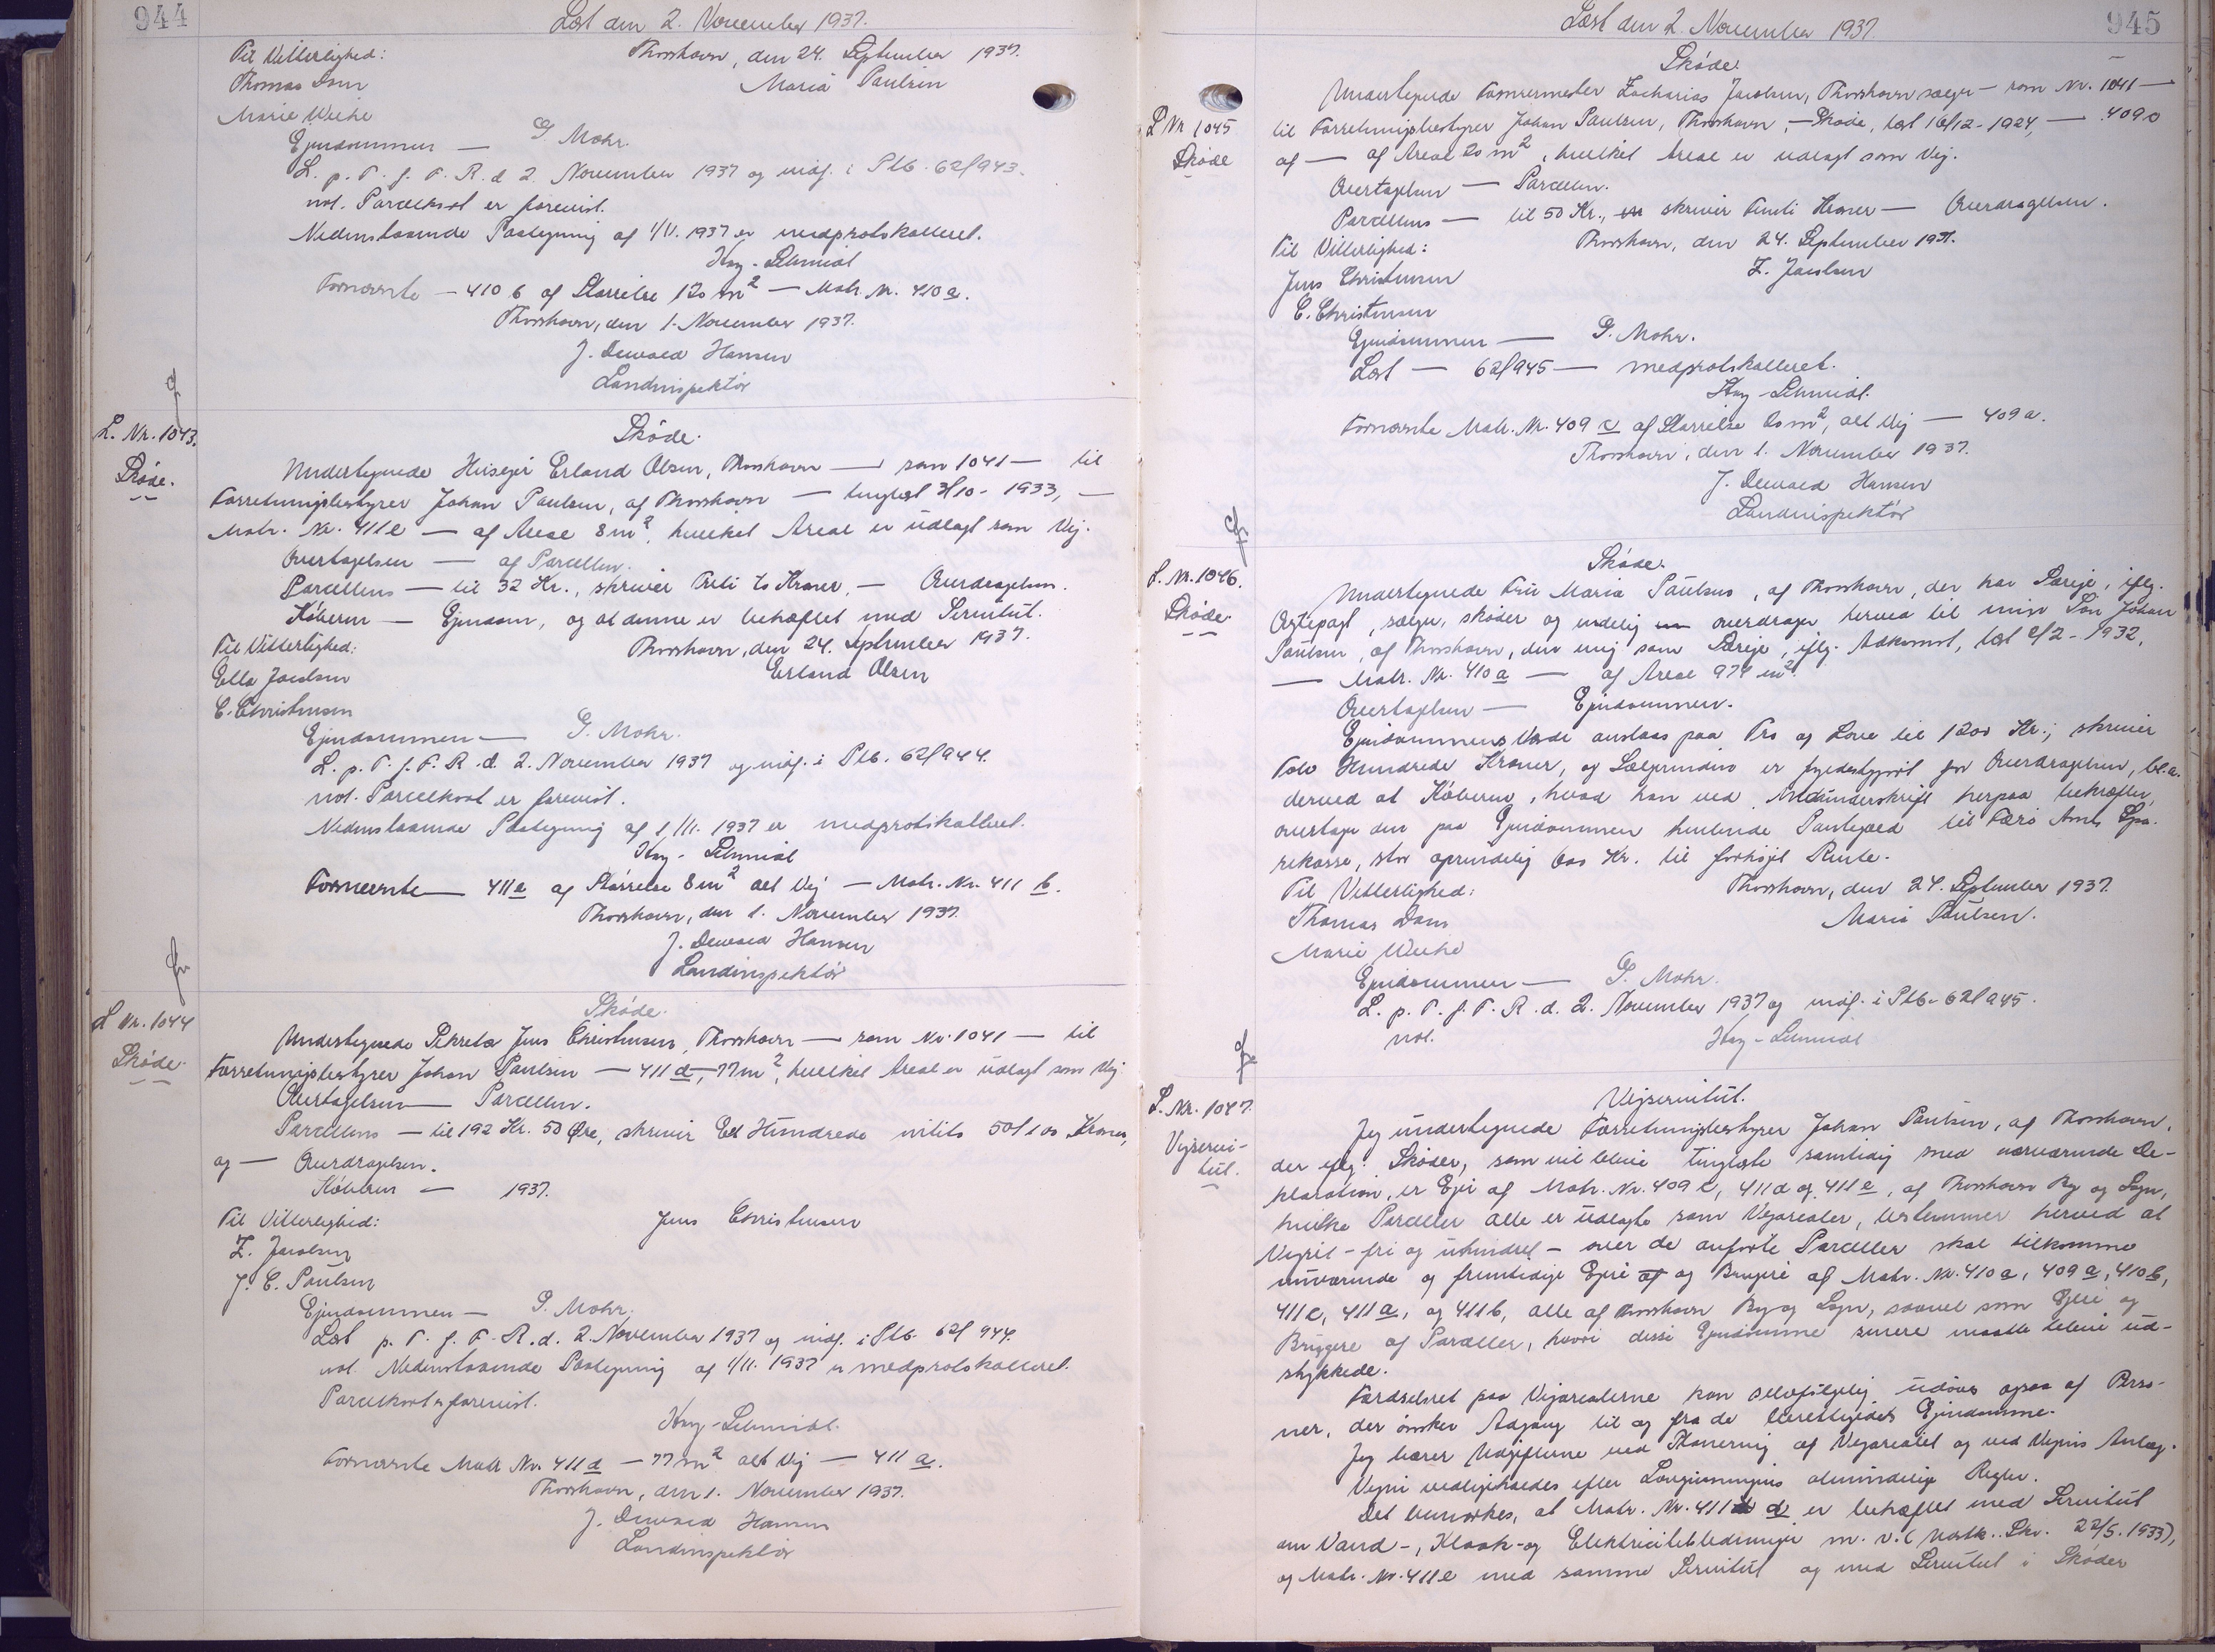 944
Læst den 2. November 1937.
Til Vitterlighed: Thorshavn, den 24. September 1937.
Thomas Dam Maria Paulsen
Marie Weihe
Ejendommen — G Mohr.
L. p. T. f. F. R. d. 2. November 1937 og indf. i Ptb. 62f943.
not. Parcelkort er forevist.
Nedenstaaende Paategning af 1/11. 1937 er medprotokolleret.
Hey-Schmidt
Fornævnte — 410 b af Størrelse 120 m² — Matr. Nr. 410 a.
Thorshavn, den 1. November 1937.
J. Dewald Hansen
Landinspektør
L. Nr. 1043.
Skøde.
Skøde.
Undertegnede Husejer Erland Olsen, Thorshavn — som 1041 — til
Forretningsbestyrer Johan Paulsen, af Thorshavn — tinglæst 3/10 - 1933, —
Matr. Nr. 411e — af Areal 8m², hvilket Areal er udlagt som Vej.
Overtagelsen — af Parcellen.
Parcellens — til 32 Kr., skriver Treti to Kroner, — Overdragelsen.
Køberen — Ejendom, og at denne er behæftet med Servitut.
Til Vitterlighed: Thorshavn, den 24. September 1937.
Ella Jacobsen Erland Olsen
C. Christensen
Ejendommen — G. Mohr.
L. p. T. f. F. R. d. 2. November 1937 og indf. i Ptb. 62f944.
not. Parcelkort er forevist.
Nedenstaaende Paategning af 1/11. 1937 er medprotokolleret.
Hey-Schmidt
Fornævnte — 411e af Størrelse 8m² alt Vej — Matr. Nr. 411 b.
Thorshavn, den 1. November 1937.
J. Dewald Hansen
Landinspektør
L Nr. 1044
Skøde.
Skøde.
Undertegnede Sekretær Jens Christensen, Thorshavn — som Nr. 1041 — til
Forretningsbestyrer Johan Paulsen — 411 d, 77 m², hvilket Areal er udlagt som Vej.
Overtagelsen — Parcellen.
Parcellens — til 192 Kr. 50 Øre, skriver Et Hundrede nitito 50/100 Kroner,
og — Overdragelsen.
Køberen — 1937.
Til Vitterlighed: Jens Christensen
Z. Jacobsen
J. C. Paulsen
Ejendommen — G. Mohr.
Læst p. T. f. F. R. d. 2. November 1937 og indf. i Ptb. 62f 944.
not. Nedenstaaende Paategning af 1/11. 1937 er medprotokolleret.
Parcelkort er forevist.
Hey-Schmidt.
Fornævnte Matr Nr. 411 d — 77 m² alt Vej — 411 a.
Thorshavn, den 1. November 1937.
J. Dewald Hansen
Landinspektør
Læst den 2. November 1937.
945
Skøde.
L Nr 1045
Skøde
Undertegnede Tømrermester Zacharias Jacobsen, Thorshavn sælger — som Nr. 1041 —
til Forretningsbestyrer Johan Paulsen, Thorshavn, — Skøde, læst 16/12 - 1924, — 409c
af — af Areal 20 m², hvilket Areal er udlagt som Vej.
Overtagelsen — Parcellen.
Parcellens — til 50 Kr., skriver Femti Kroner — Overdragelsen.
Til Vitterlighed: Thorshavn, den 24. September 1937.
Jens Christensen Z. Jacobsen
C. Christensen
Ejendommen — G. Mohr.
Læst — 62f945 — medprotokolleret.
Hey-Schmidt.
Fornævnte Matr. Nr. 409 c af Størrelse 20 m², alt Vej — 409 a.
Thorshavn, den 1. November 1937.
J. Dewald Hansen
Landinspektør
L. Nr. 1046.
Skøde.
Skøde.
Undertegnede Fru Maria Paulsen, af Thorshavn, der har Særeje, iflg.
Ægtepagt, sælger, skøder og endelig overdrager herved til min Søn Johan
Paulsen, af Thorshavn, den mig som Særeje, iflg. Adkomst, læst 2/2 - 1932,
— Matr. Nr. 410 a — af Areal 974 m².
Overtagelsen — Ejendommen.
Ejendommens Værdi anslaas paa Tro og Love til 1200 Kr.; skriver
Tolv Hundrede Kroner, og Sælgerinden er fyldestgjort for Overdragelsen, bl.a.
derved at Køberen, hvad han ved Medunderskrift herpaa bekræfter,
overtager den paa Ejendommen hvilende Pantegæld til Færø Amts Spa-
rekasse, stor oprindelig 600 Kr. til forhøjet Rente.
Til Vitterlighed: Thorshavn, den 24. September 1937.
Thomas Dam Maria Paulsen.
Marie Weihe
Ejendommen — G. Mohr.
L. p. T. f. F. R. d. 2. November 1937 og indf. i Ptb. 62f 945.
not. Hey-Schmidt
L. Nr. 1047.
Vejservi-
tut.
Vejservitut.
Jeg undertegnede Forretningsbestyrer Johan Paulsen, af Thorshavn,
der iflg. Skøder, som vil blive tinglæst samtidig med nærværende De-
klaration, er Ejer af Matr. Nr. 409 c, 411d og 411e, af Thorshavn By og Sogn,
hvilke Parceller alle er udlagte som Vejarealer, bestemmer herved at
Vejret - fri og uhindret - over de anførte Parceller skal tilkomme
nuværende og fremtidige Ejere og Brugere af Matr. Nr. 410 a, 409 a, 410 b,
411c, 411 a, og 411b, alle af Thorshavn By og Sogn, saavel som Ejere og
Brugere af Parceller, hvori disse Ejendomme senere maatte blive ud-
stykkede.
Færdselsret paa Vejarealerne kan selvfølgelig udøves ogsaa af Perso-
ner, der ønsker Adgang til og fra de berettigedes Ejendomme.
Jeg bærer Udgifterne ved Planering af Vejarealet og ved Vejens Anlæg.
Vejen vedligeholdes efter Lovgivningens almindelige Regler.
Det bemærkes, at Matr. Nr. 411 d er behæftet med Servitut
om Vand-, Kloak- og Elektricitetsledninger m. v. ( . Skr. 22/5. 1933),
og Matr. Nr. 411e med samme Servitut og med Servitut i Skøder